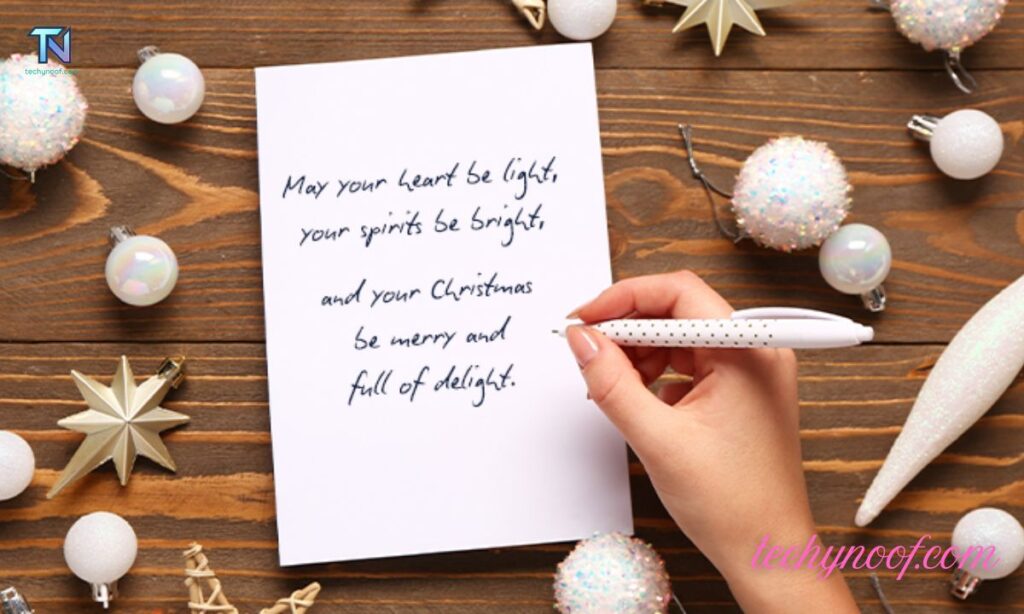 TN
techynoof.com
May your heart be light,
your spirits be bright,
and your Christmas
be merry and
full of delight.
techynoof.com